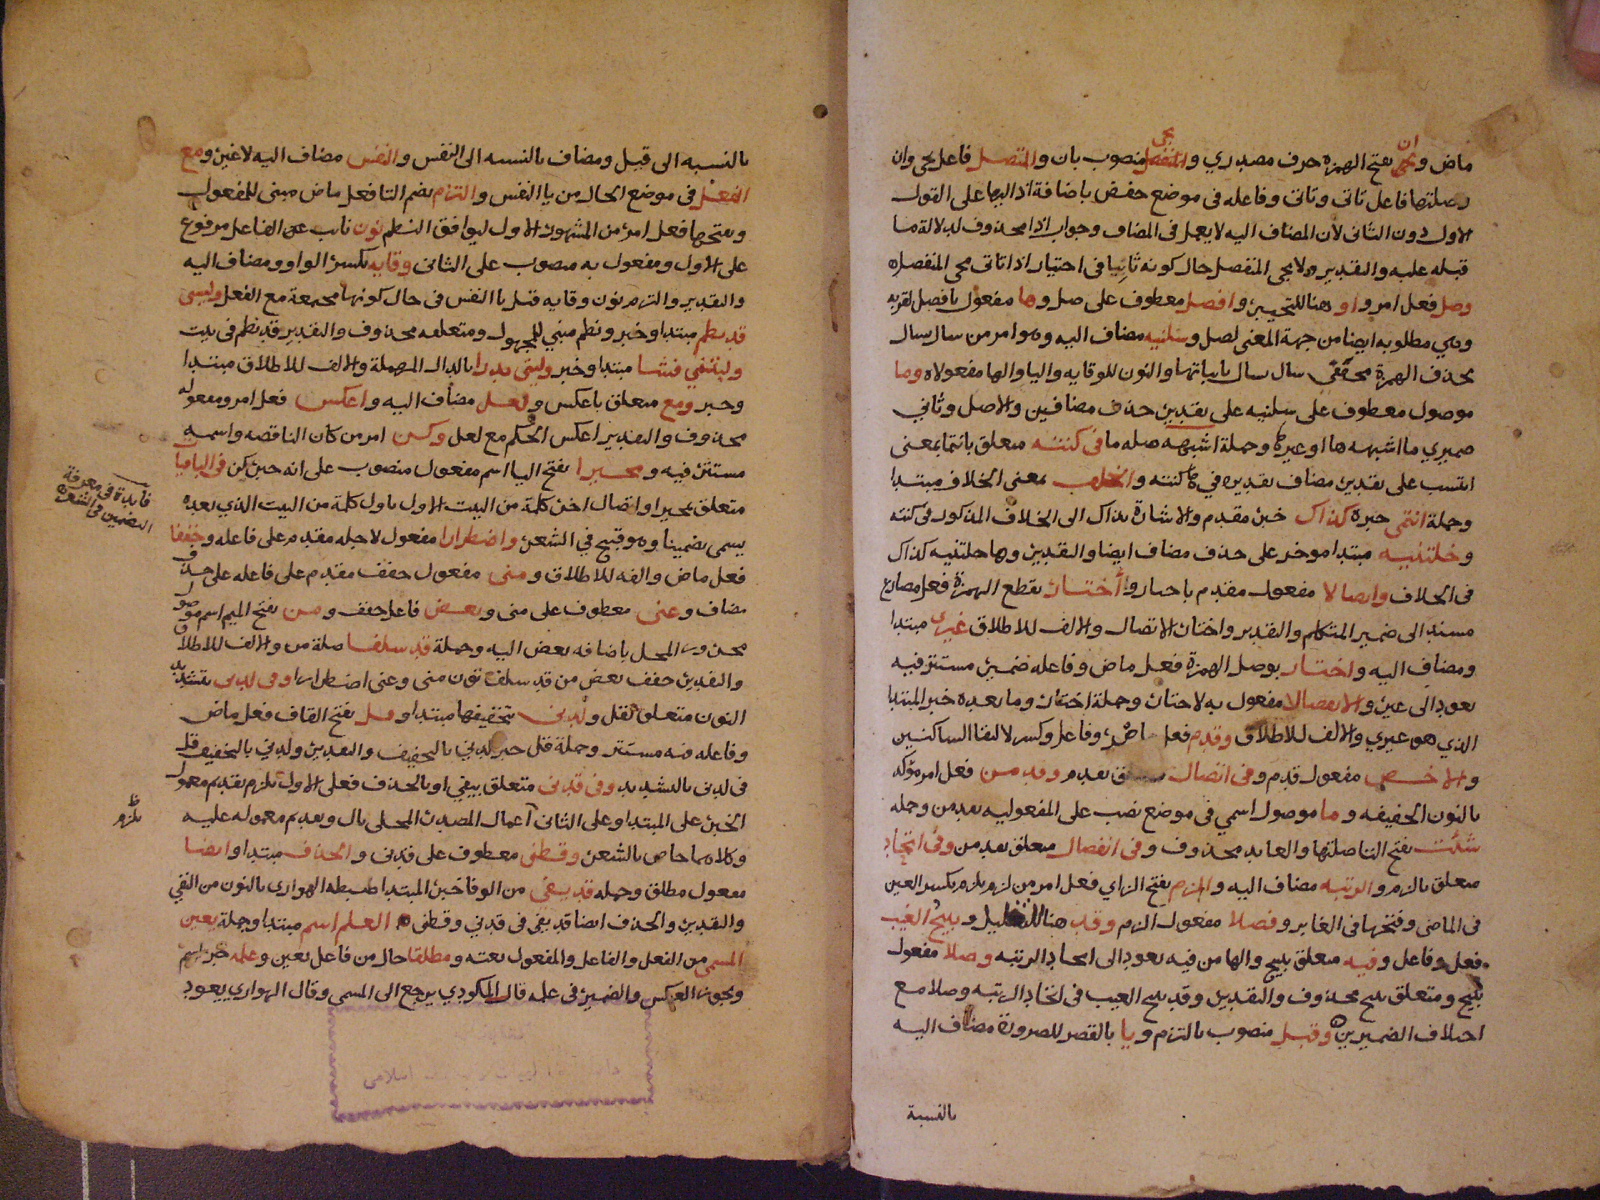 ماض وان يجي بفتح الهمزة حرف مصدري والمنفصل منصوب بان والمتصل فاعل يجي وان
وصلتها فاعل تاتي وتاتي وفاعله في موضع خفض باضافة اذ اليها على القول
الاول دون الثاني لأن المضاف اليه لا يعمل في المضاف وجواب اذا محذوف لدلالة ما
قبله عليه والتقدير ولا يجي المنفصل حال كونه ثابتا في اختيار اذا تاتي مجي المتصل
وصل فعل امر واو هنا للتخيير وافصل معطوف على صل وها مفعول بافصل لقربه
وهي مطلوبه ايضا من جهة المعنى لصل وسلنيه مضاف اليه وهو امر من سال سال
بحذف الهمزة سال سال باثباتها والنون للوقاية واليا والها مفعولاه وما
موصول معطوف على سلنيه على تقدير حذف مضافين والاصل وثاني
ضميري ما اشبهه ها او غيره وجملة اشبهه صلة ما في كنته متعلق بانتما بمعنى
انتسب على تقدير مضاف تقديره في ها كنته والخلف بمعنى الخلاف مبتدا
وجملة انتمى خبره كذاك خبر مقدم والاشارة بذاك الى الخلاف المذكور في كنته
وخلتنيه مبتدا موخر على حذف مضاف ايضا والتقدير وها خلتنيه كذاك
في الخلاف واتصالا مفعول مقدم باختار واختار بقطع الهمزة فعل مضارع
مسند الى ضمير المتكلم والتقدير واختار الاتصال والالف للاطلاق غيري مبتدا
ومضاف اليه واختار بوصل الهمزة فعل ماض وفاعله ضمير مستتر فيه
يعود الى غير والانفصالا مفعول به لاختار وجملة اختار وما بعده خبر المبتدا
الذي هو غيري والالف للاطلاق وقدم فعل وفاعل وكسر لالتقا الساكنين
والاخص مفعول قدم وفي اتصال بقدم وقدمن فعل امر مؤكد
بالنون الخفيفة وما موصول اسمي في موضع نصب على المفعولية بقدمن وجملة
شئت بفتح التا صلتها والعايد محذوف وفي انفصال متعلق بقدمن وفي اتحاد
متعلق بالزم والرتبه مضاف اليه والزم بفتح الزاي فعل امر من لزم يلزم بكسر العين
في الماضي وفتحها في الغابر وفصلا مفعول الزم وقد هنا للتقليل ويبيح الغيب
فعل وفاعل وفيه متعلق بيبيح والها من فيه يعود الى اتحاد الرتبه وصلا مفعول
يبيح ومتعلق يبيح محذوف والتقدير وقد يبيح الغيب في اتحاد الرتبه وصلا مع
اختلاف الضميرين وقبل منصوب بالتزم ويا بالقصر للضرورة مضاف اليه
بالنسبة
بالنسبه الى قبل ومضاف بالنسبه الى النفس والنفس مضاف اليه لا غير ومع
الفعل في موضع الحال من يا النفس والتزم بضم التا فعل ماض مبني للمفعول
وبفتحها فعل امر من المشهور الاول ليوافق النظم نون نايب عن الفاعل مرفوع
على الاول ومفعول به منصوب على الثاني وقايه بكسر الواو ومضاف اليه
والتقدير والتزم نون وقايه قبل يا النفس في حال كونها مجتمعة مع الفعل وليسي
قد نظم مبتدا وخبر ونظم مبني للمجهول ومتعلقه محذوف والتقدير قد نظم في بيت
وليتني فشا مبتدا وخبر وليتي ندرا بالدال المهملة والالف للاطلاق مبتدا
وخبر ومع متعلق باعكس ولعل مضاف اليه واعكس فعل امر ومفعوله
محذوف والتقدير اعكس الحكم مع لعل وكن امر من كان الناقصه واسمه
مستتر فيه ومخيرا بفتح اليا اسم مفعول منصوب على انه خبر كن في الباقيات
متعلق بمخيرا واتصال اخر كلمة من البيت الاول باول كلمة من البيت الذي بعده
يسمى تضمينا وهو قبيح في الشعر واضطرارا مفعول لاجله مقدم على فاعله وخففا
فعل ماض والفه للاطلاق ومني مفعول خفف مقدم على فاعله على حذف
مضاف وعني معطوف على مني وبعض فاعل خفف ومن بفتح الميم اسم موصول
المحل باضافه بعض اليه وجملة قد سلفا صلة من والالف للاطلاق
والتقدير خفف بعض من قد سلف نون مني وعني اضطرارا وفي لدني بتشديد
النون متعلق بقل ولدني بتخفيفها مبتدا وقل بفتح القاف فعل ماض
وفاعله فيه مستتر وجملة قل خبر لدني بالتخفيف والتقدير ولدني بالتخفيف قل
في لدني بالتشديد وفي قدني متعلق بيفي او بالحذف فعلى الاول يلزم تقديم معمول
الخبر على المبتدا وعلى الثاني اعمال المصدر المحلى بال وتقديم معموله عليه
وكلاهما خاص بالشعر وقطني معطوف على قدني والحذف مبتدا وايضا
مفعول مطلق وجمله قد يفي من الوفا خبر المبتدا ضبطه الهواري بالنون من النفي
والتقدير والحذف ايضا قد يفي في قدني وقطني العلم اسم مبتدا وجملة يعين
المسمى من الفعل والفاعل والمفعول نعته ومطلقا حال من فاعل يعين وعلمه خبر اسم
ويجوز العكس والضمير في علمه قال المكودي يرجع الى المسمى وقال الهواري يعود
فايدة في معرفة
التضمين في الشعر
يلزم